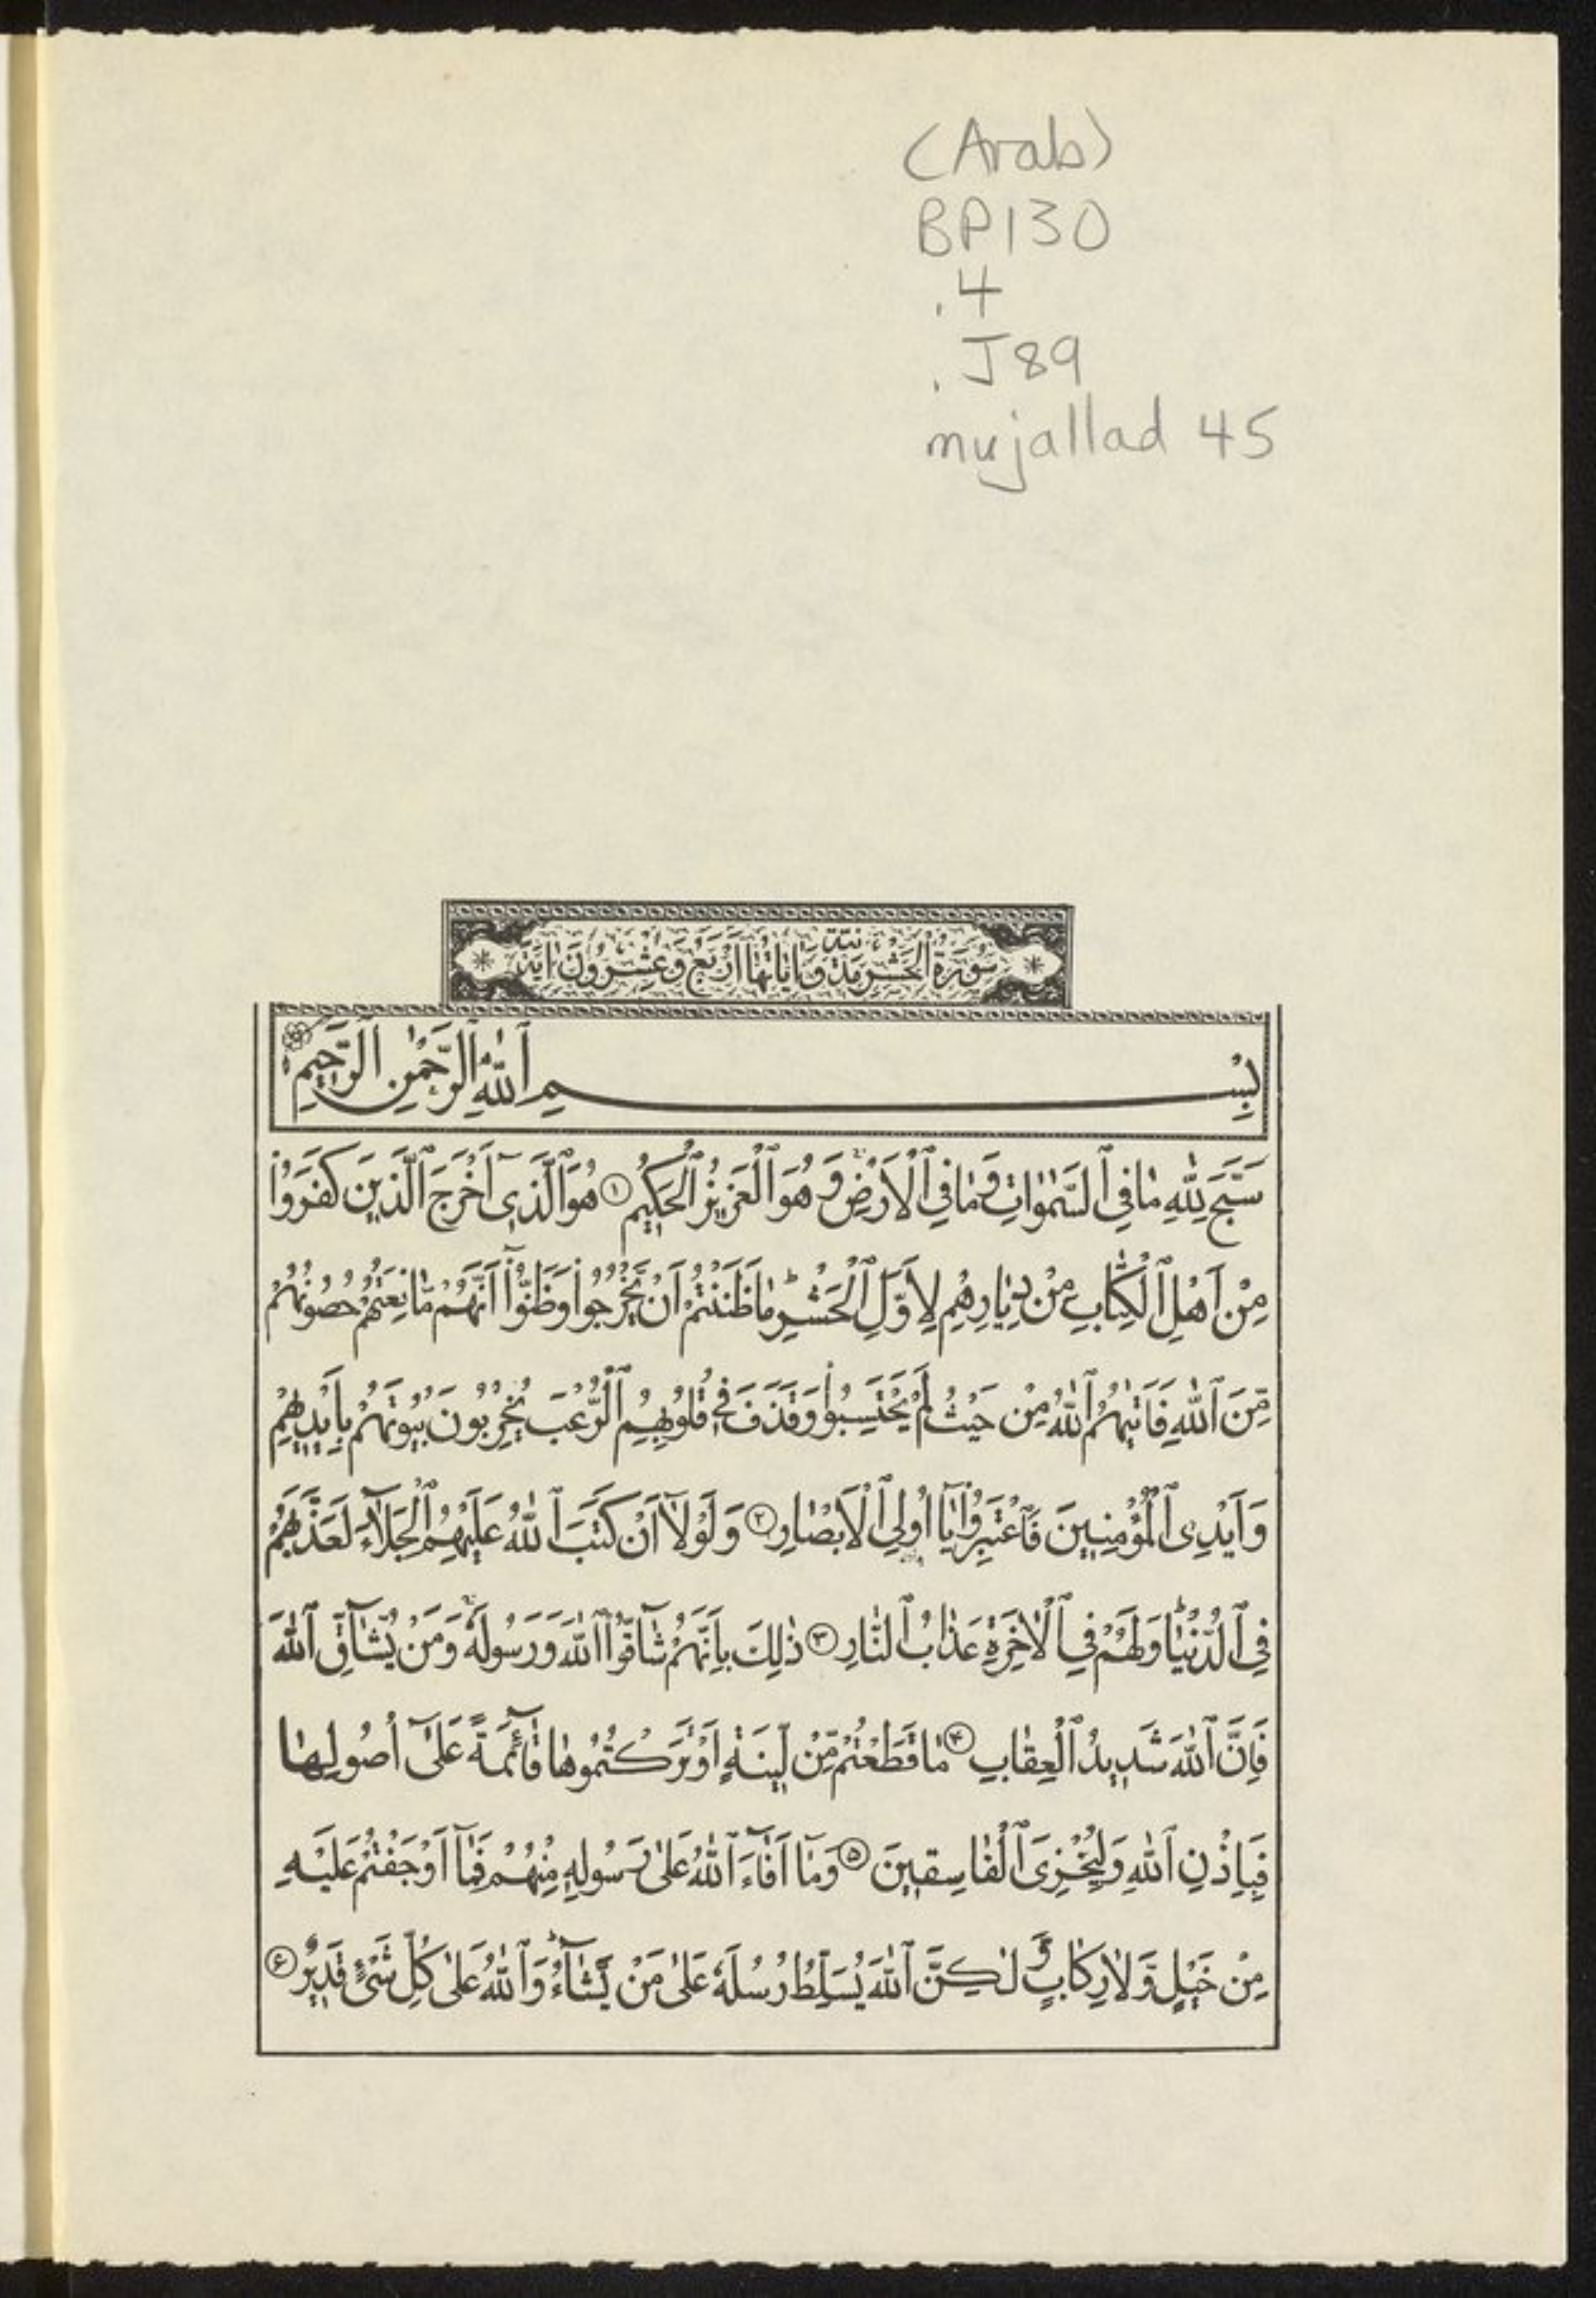 (Arab)
BP130
.4
.J89
mujallad 45
سُورَةُ الْحَشْرِ مَدَنِيَّةٌ وَاٰيَاتُهَا اَرْبَعٌ وَعِشْرُونَ اٰيَة
بِسْمِ ٱللّٰهِ ٱلرَّحْمٰنِ ٱلرَّحِيمِ
سَبَّحَ لِلّٰهِ مٰا فِي ٱلسَّمٰوٰاتِ وَ مٰا فِي ٱلْأَرْضِ وَ هُوَ ٱلْعَزِيزُ ٱلْحَكِيمُ ١ هُوَ ٱلَّذِي أَخْرَجَ ٱلَّذِينَ كَفَرُوا
مِنْ أَهْلِ ٱلْكِتٰابِ مِنْ دِيٰارِهِمْ لِأَوَّلِ ٱلْحَشْرِ مٰا ظَنَنْتُمْ أَنْ يَخْرُجُوا وَظَنُّوا أَنَّهُمْ مٰانِعَتُهُمْ حُصُونُهُمْ
مِنَ ٱللّٰهِ فَأَتٰيهُمُ ٱللّٰهُ مِنْ حَيْثُ لَمْ يَحْتَسِبُوا وَقَذَفَ فِي قُلُوبِهِمُ ٱلرُّعْبَ يُخْرِبُونَ بُيُوتَهُمْ بِأَيْدِيهِمْ
وَأَيْدِي ٱلْمُؤْمِنِينَ فَٱعْتَبِرُوا يٰا أُولِي ٱلْأَبْصٰارِ ٢ وَ لَوْلٰا أَنْ كَتَبَ ٱللّٰهُ عَلَيْهِمُ ٱلْجَلٰاءَ لَعَذَّبَهُمْ
فِي ٱلدُّنْيٰا وَلَهُمْ فِي ٱلْاٰخِرَةِ عَذٰابُ ٱلنّٰارِ ٣ ذٰلِكَ بِأَنَّهُمْ شٰاقُّوا ٱللّٰهَ وَ رَسُولَهُ وَ مَنْ يُشٰاقِّ ٱللّٰهَ
فَإِنَّ ٱللّٰهَ شَدِيدُ ٱلْعِقٰابِ ۴ مٰا قَطَعْتُمْ مِنْ لِينَةٍ أَوْ تَرَكْتُمُوهٰا قٰائِمَةً عَلىٰ أُصُولِهٰا
فَبِإِذْنِ ٱللّٰهِ وَلِيُخْزِيَ ٱلْفٰاسِقِينَ ۵ وَمٰا أَفٰاءَ ٱللّٰهُ عَلىٰ رَسُولِهِ مِنْهُمْ فَمٰا أَوْجَفْتُمْ عَلَيْهِ
مِنْ خَيْلٍ وَ لٰا رِكٰابٍ وَ لٰكِنَّ ٱللّٰهَ يُسَلِّطُ رُسُلَهُ عَلىٰ مَنْ يَشٰاءُ وَ ٱللّٰهُ عَلىٰ كُلِّ شَيْءٍ قَدِيرٌ ۶